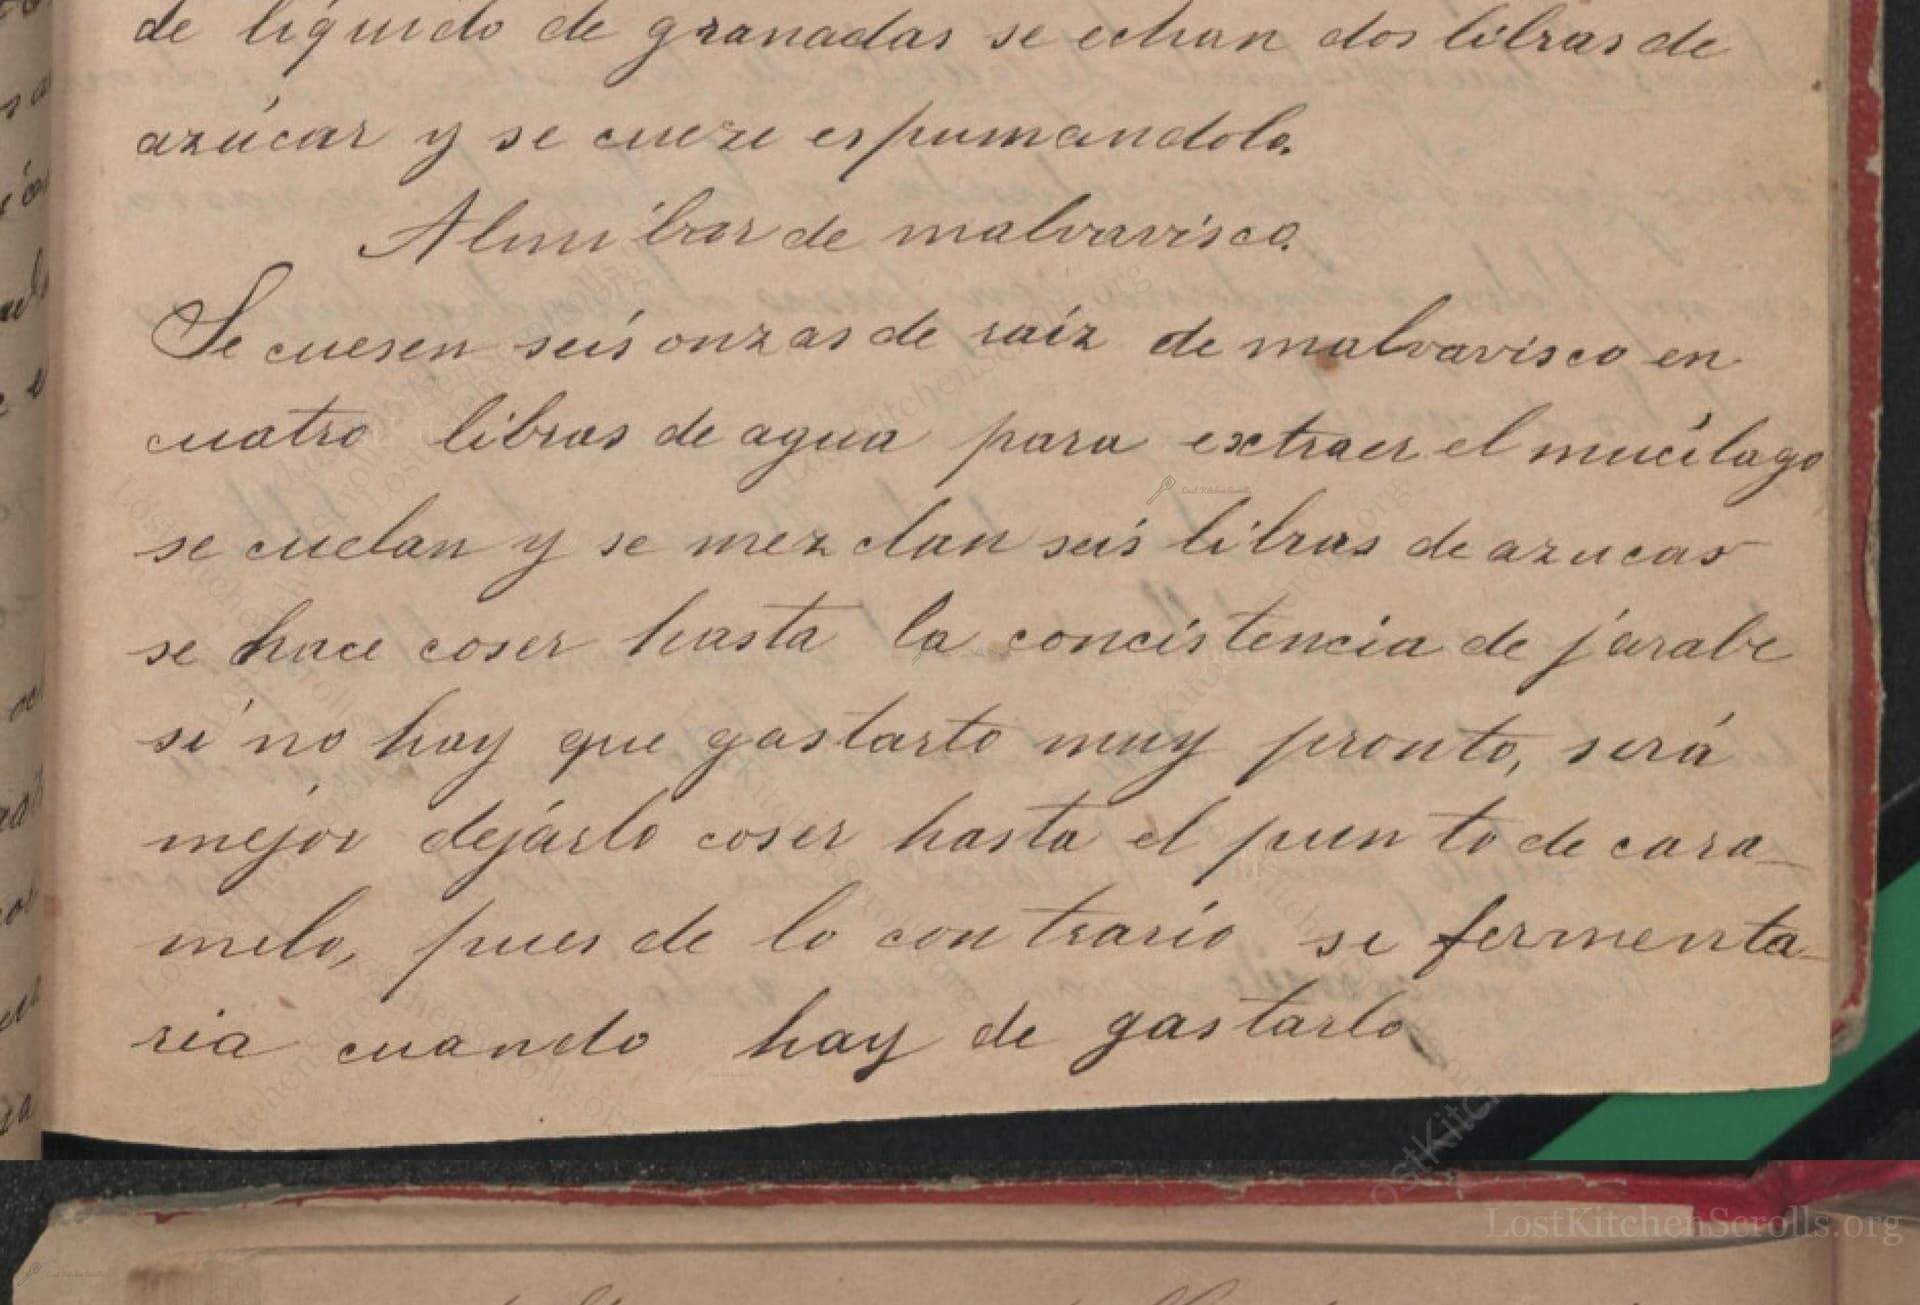 de líquido de granadas se echan dos libras de
azúcar y se cueze espumandolo.
Almíbar de malvavisco.
Se cuesen seis onzas de raíz de malvavisco en
cuatro libras de agua para extraer el mucílago
se cuelan y se mezclan seis libras de azucar
se hace coser hasta la concistencia de jarabe
si no hay que gastarto muy pronto, será
mejor dejárlo coser hasta el punto de cara-
melo, pues de lo contrario se fermenta-
ria cuando hay de gastarlo
LostKitchenScrolls.org